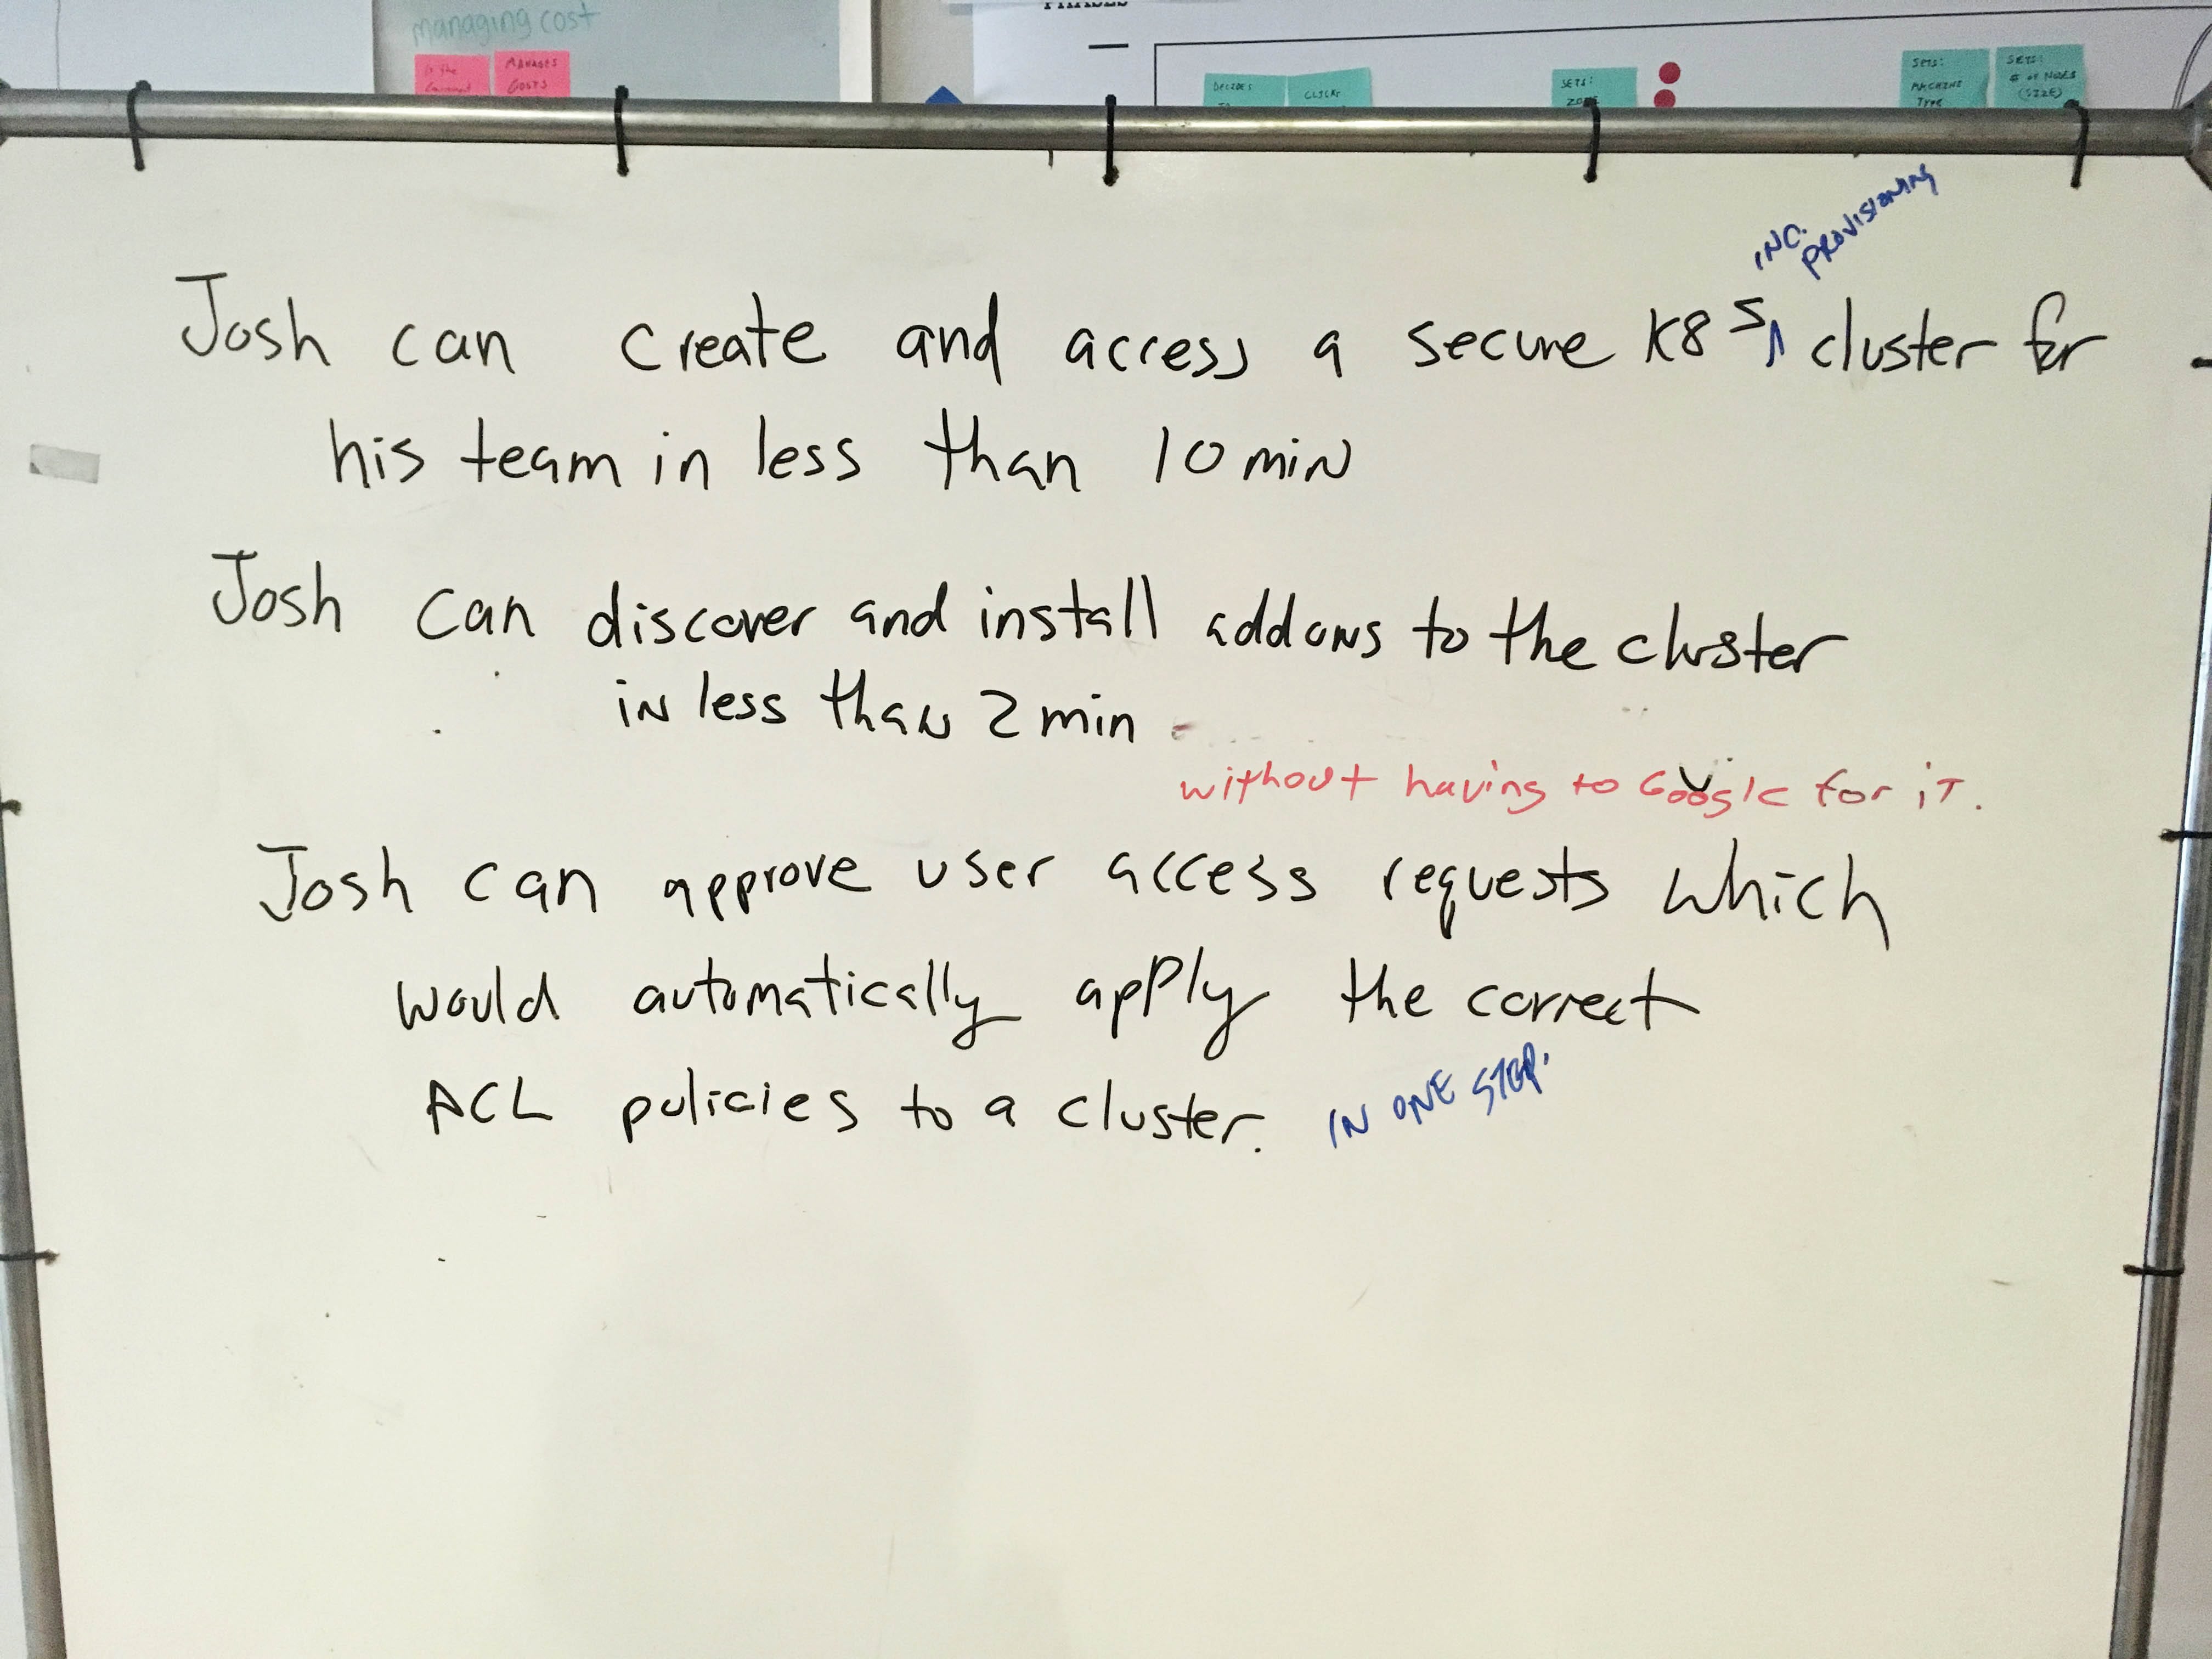 managing cost
in the
MANAGES
COSTS
DECIDES
CLICKS
SETS:
ZONE
SETS:
MACHINE
TYPE
SETS:
# OF NODES
(SIZE)
INC.
PROVISIONING
Josh can create and access a secure K8S cluster for
his team in less than 10 min
Josh can discover and install addons to the cluster
in less than 2 min
without having to Google for it.
Josh can approve user access requests which
would automatically apply the correct
ACL policies to a cluster. IN ONE STEP.